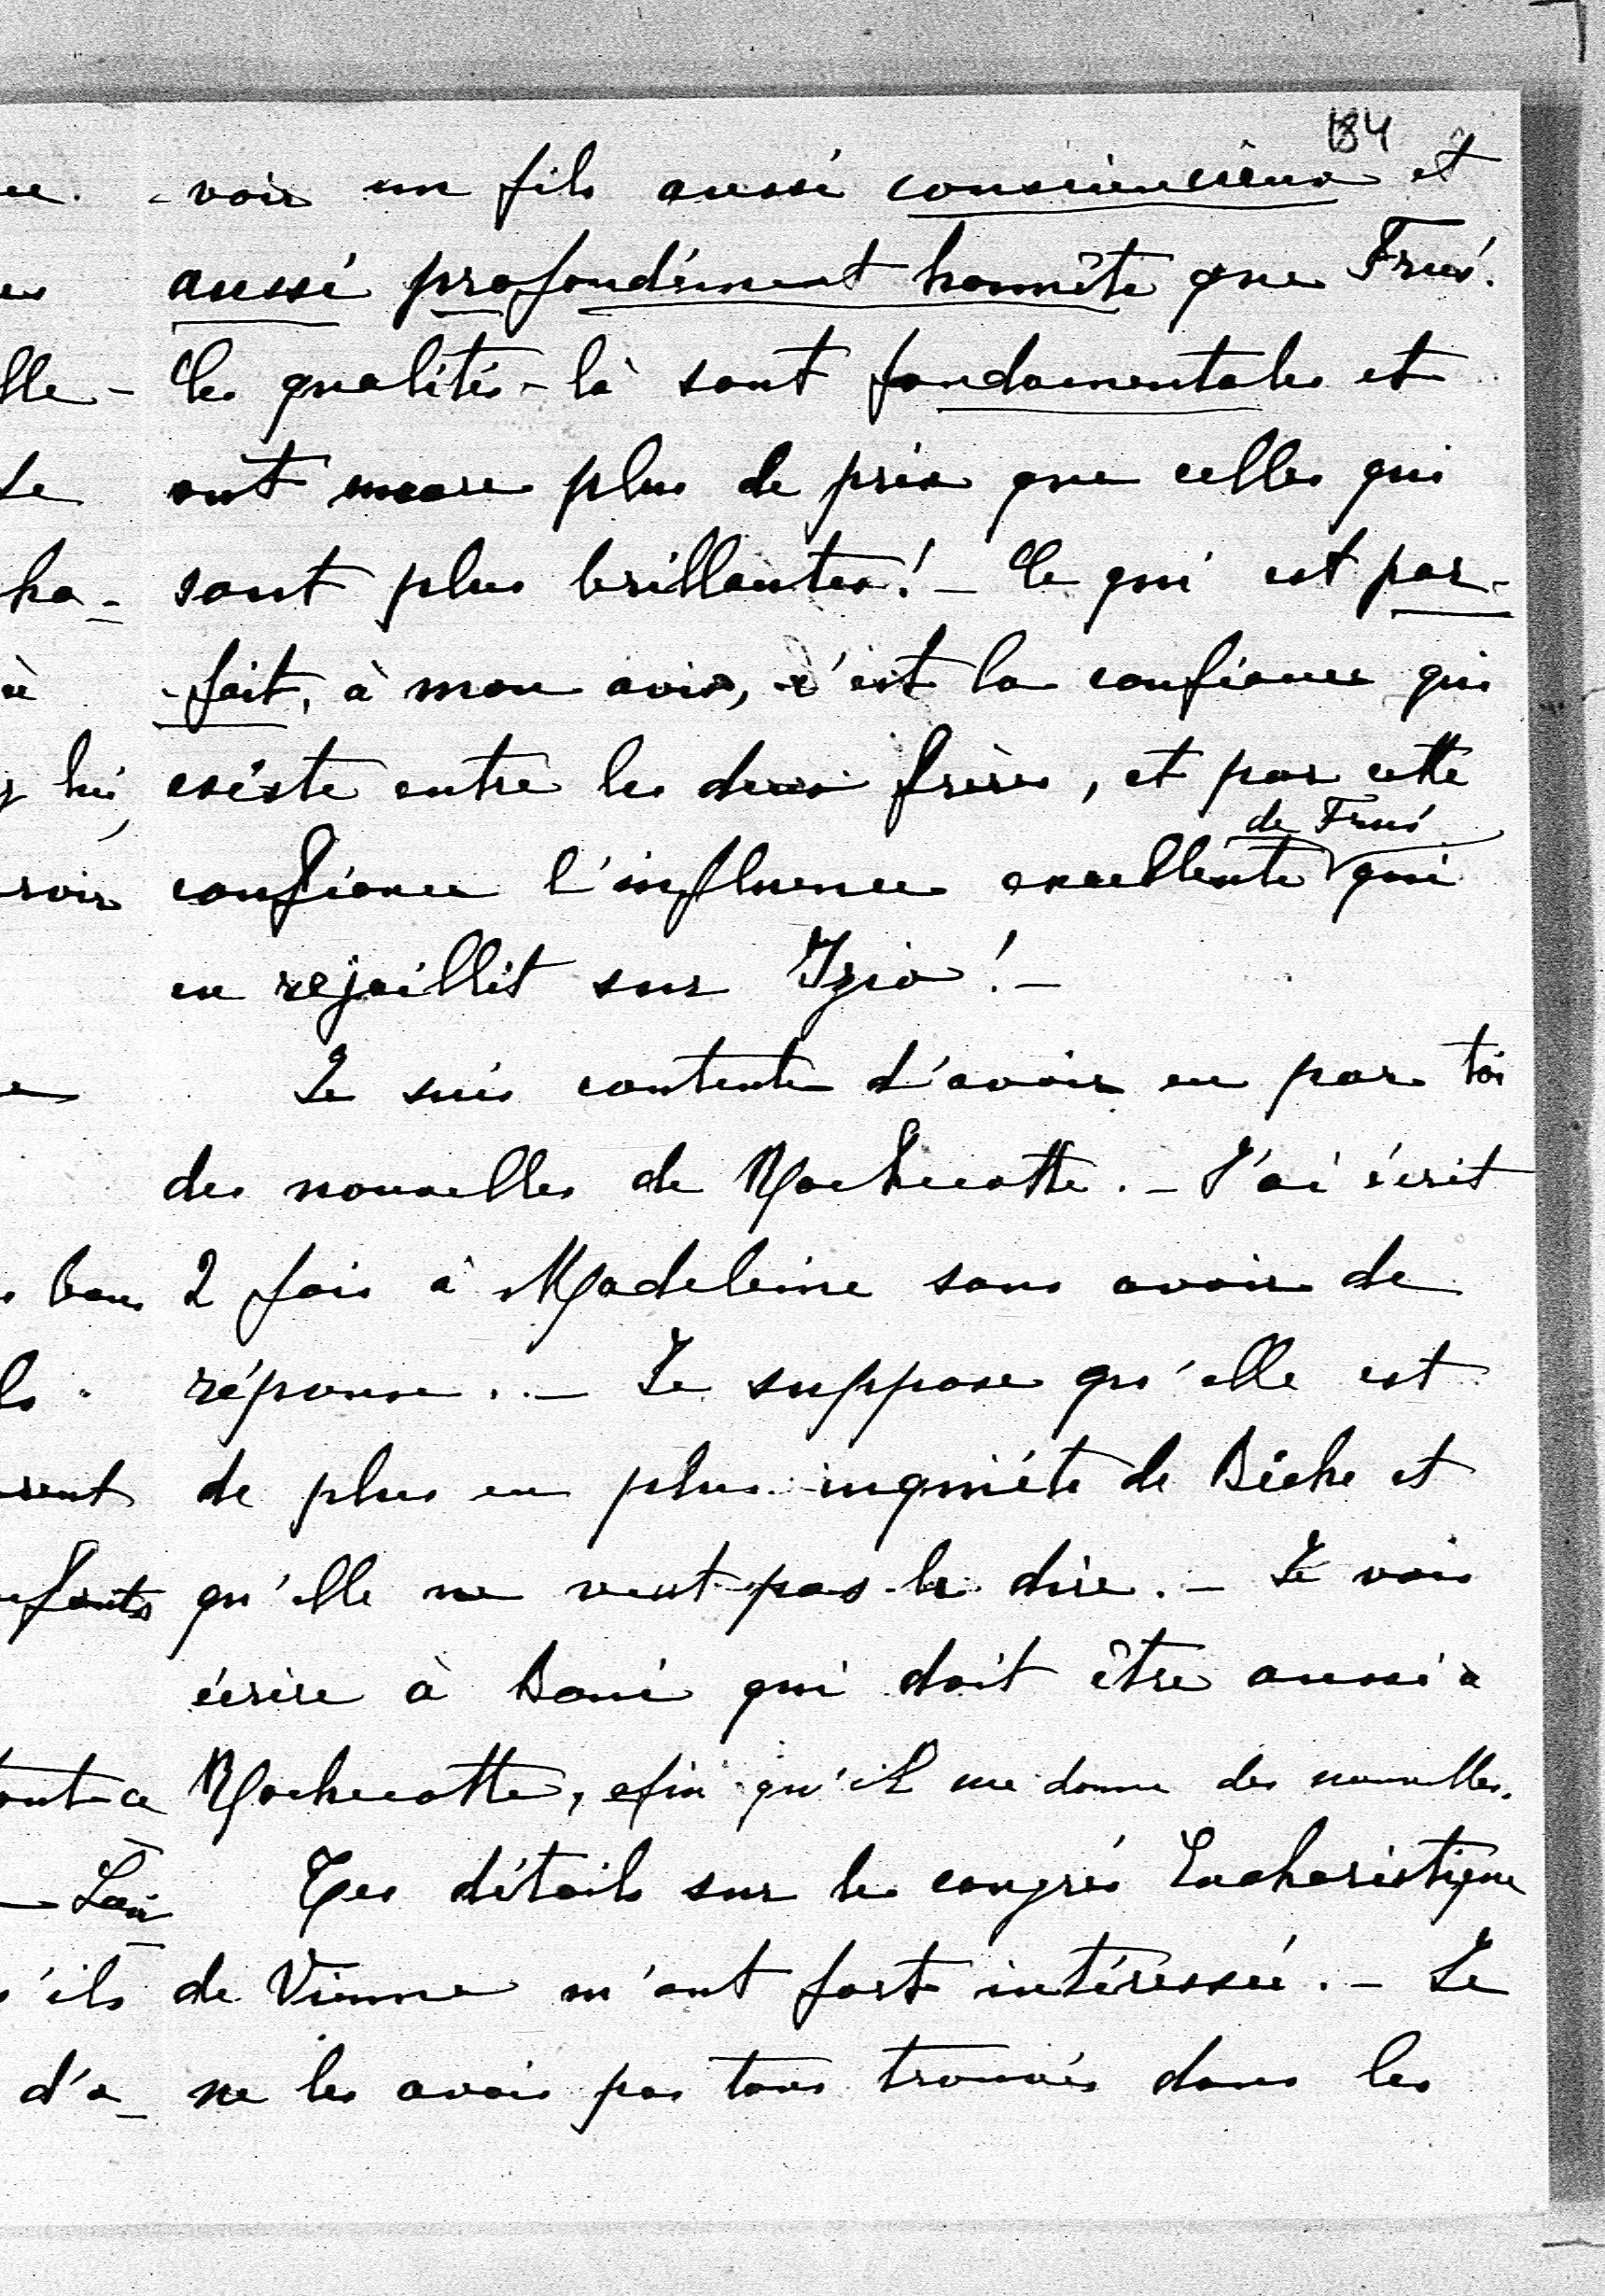 184
-voir un fils aussi consciencieux et
aussi profondément honnête que Frus.
Ces qualités-là sont fondamentales et
ont encore plus de prix que celles qui
sont plus brillantes! - Ce qui est par-
-fait, à mon avis, c'est la confiance qui
existe entre les deux frères, et par cette
de Frus
confiance l'influence excellente qui
en rejaillit sur Izio! -
Je suis contente d'avoir eu par toi
des nouvelles de Rochecotte. - J'ai écrit
2 fois à Madeleine sans avoir de
réponse. - Je suppose qu'elle est
de plus en plus inquiète de Biche et
qu'elle ne veut pas le dire. - Je vais
écrire à Boni qui doit être aussi à
Rochecotte, afin qu'il me donne des nouvelles.
Tes détails sur le congrès Eucharistique
de Vienne m'ont fort intéressée. - Je
ne les avais pas tous trouvés dans les